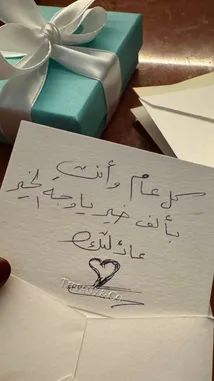 كل عام وأنتِ
بألف خير يا وجه الخير
عائلتك